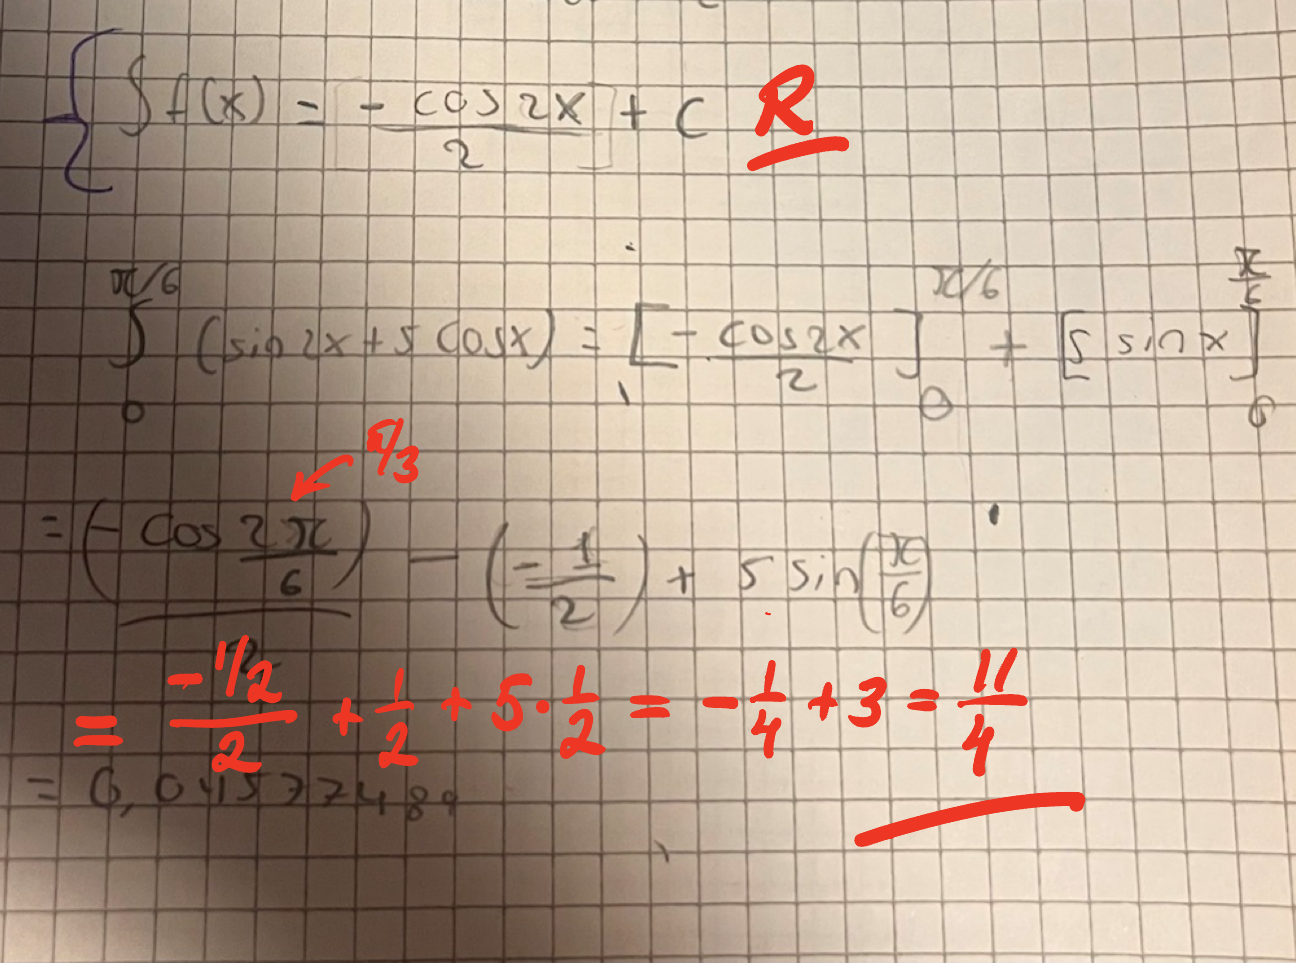 ∫ f(x) = - cos 2x / 2 + C R
π/6 ∫ 0 (sin 2x + 5 cos x) = [ - cos 2x / 2 ] π/6 0 + [5 sin x] π/6 0
π/3
= (- cos 2π/6) / 2 - (- 1/2) + 5 sin(π/6)
= -1/2 / 2 + 1/2 + 5 · 1/2 = - 1/4 + 3 = 11/4
= 0,045772489